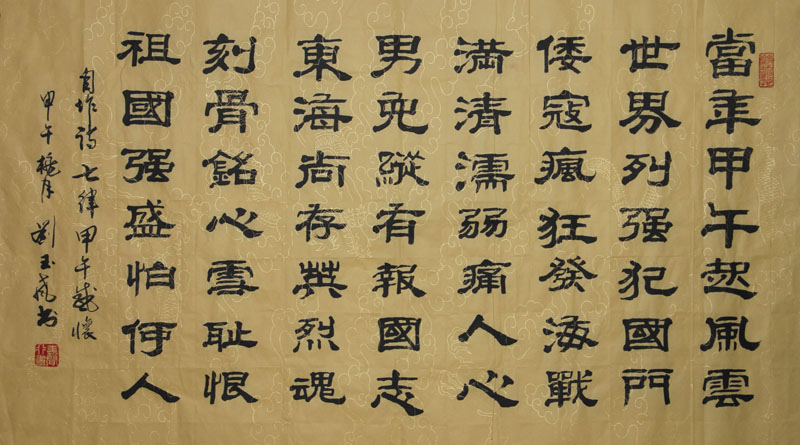 當年甲午起風雲
世界列强犯國門
倭寇瘋狂發海戰
満清濡弱痛人心
男兒縱有報國志
東海尚存英烈魂
刻骨銘心雪耻恨
祖國强盛怕何人
自作詩七律甲午感懷
甲午 月劉玉 书